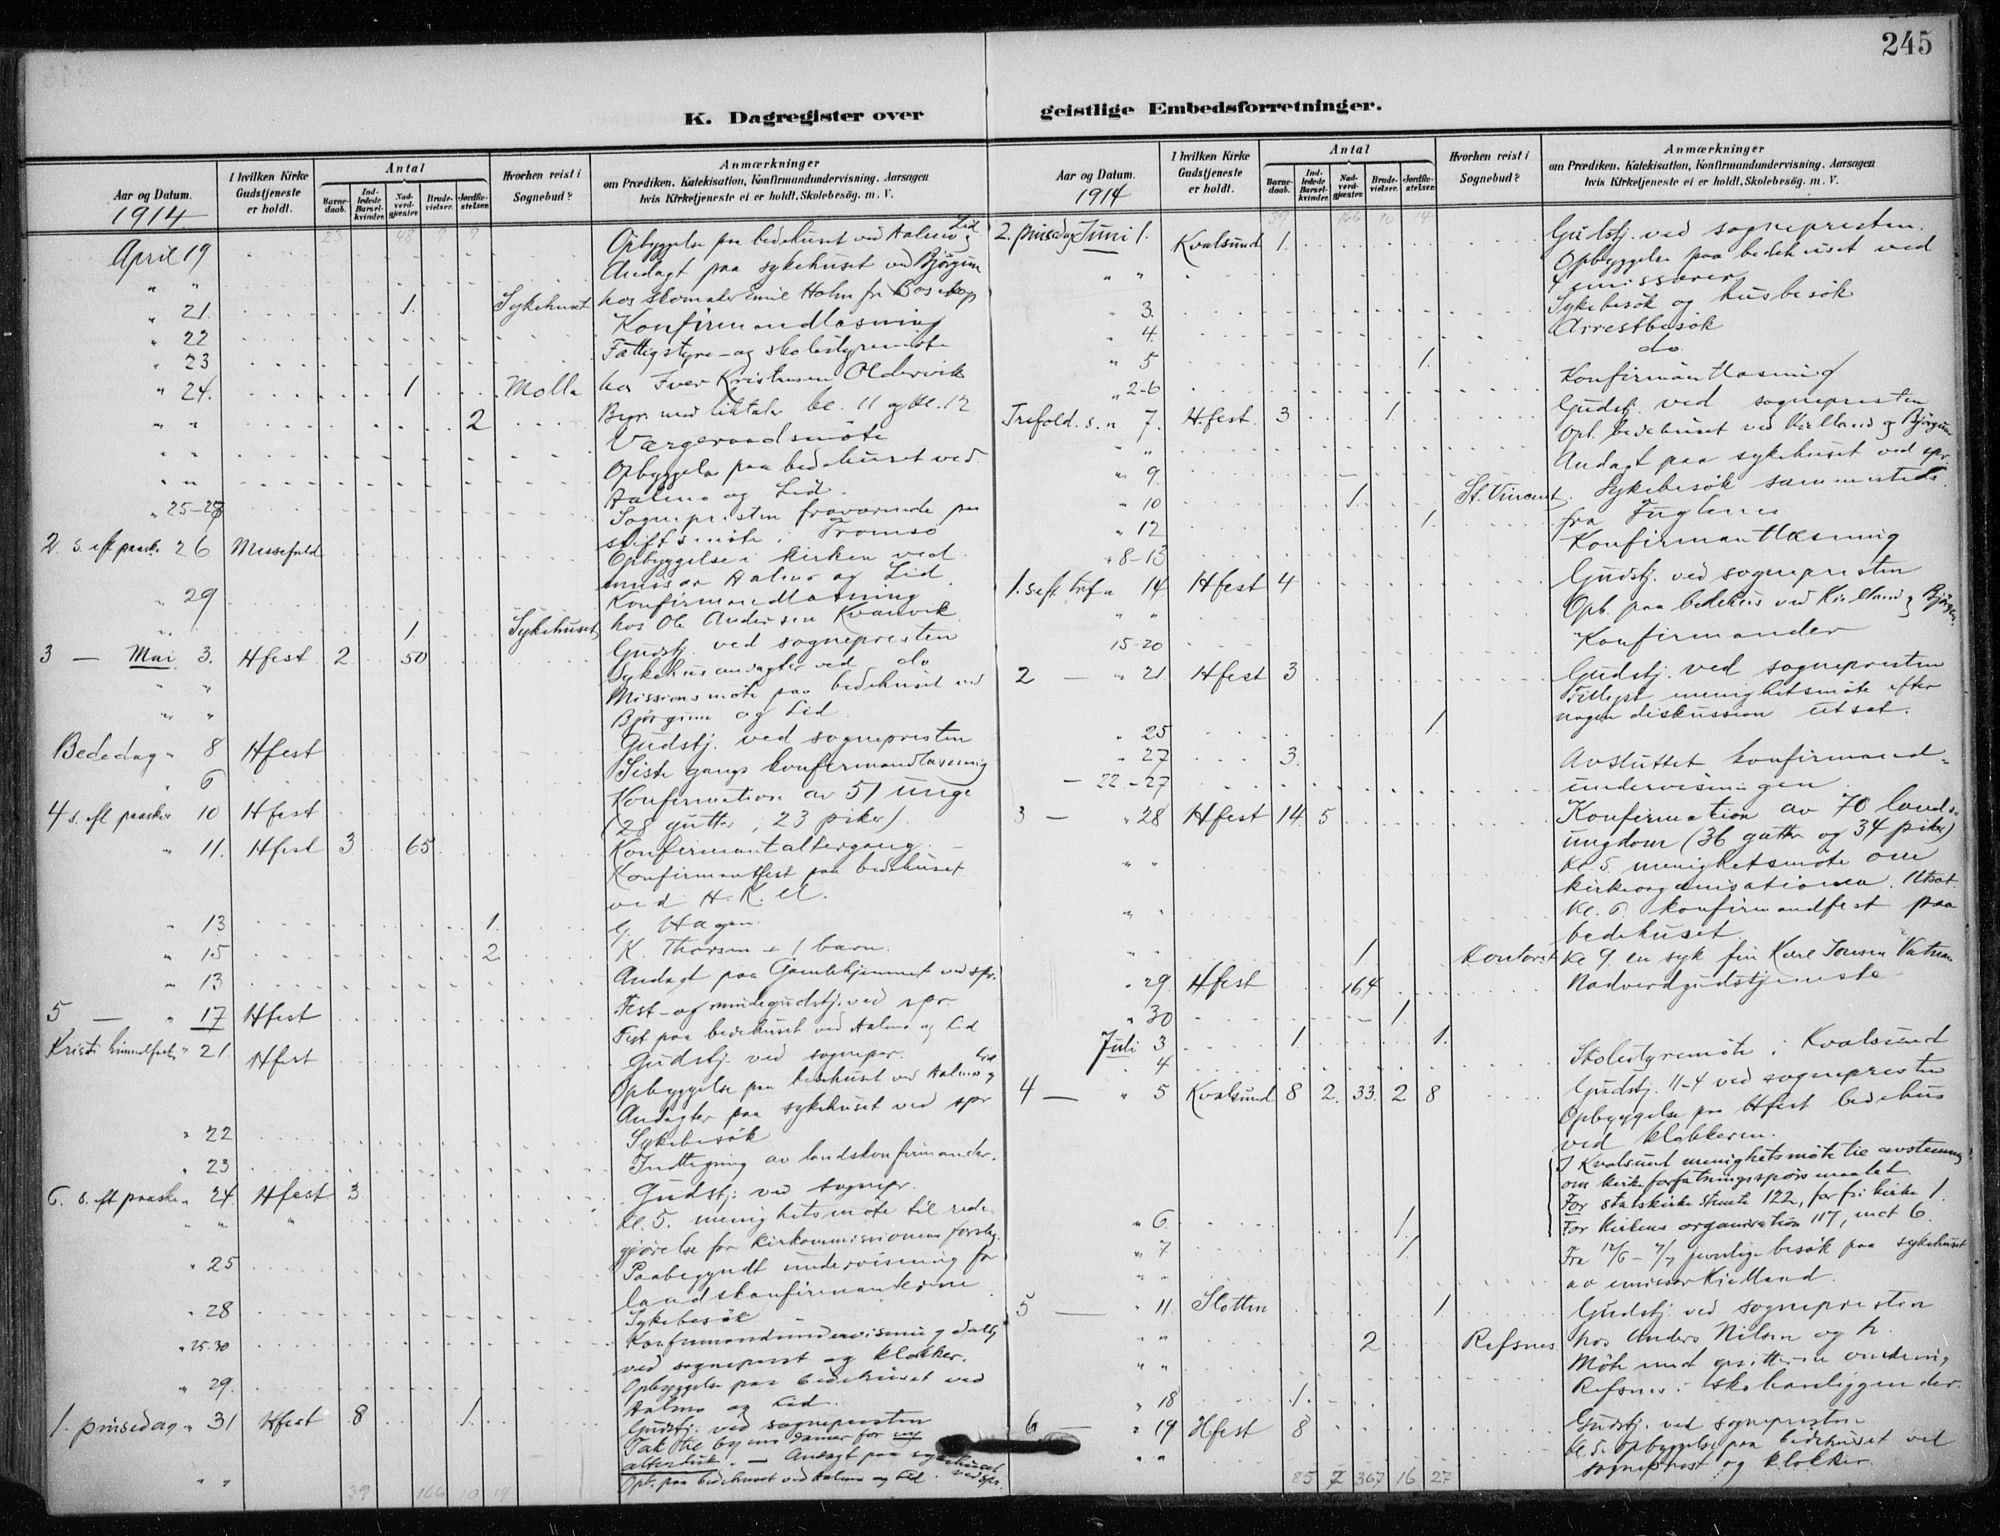 245
K. Dagregister over geistlige Embedsforretninger.
Aar og Datum. 1914
I hvilken Kirke Gudstjeneste er holdt.
Antal
Barnedaab. Indledede Barselkvinder. Nadverdgjester. Brudevielser. Jordfæstelser.
Hvorhen reist i Sognebud?
Anmærkninger
om Prædiken, Katekisation, Konfirmandundervisning, Aarsagen
hvis Kirketjeneste ei er holdt, Skolebesøg. m. V.
April 19 Opbyggelse paa bedehuset ved Aalmo og Lid
" " Andagt paa sykehuset ved Bjørgum
" 21. 1. Sykehuset hos skomaker Emil Holm fr. Bosekop
" 22 Konfirmandlæsning
" 23 Fattigstyre- og skolestyremøte
" 24. 1 Molla hos Iver Kristensen Oldervik
" " 2 kl. 11 og kl. 12
" " Værgeraadsmöte
" " Opbyggelse paa bedehuset ved
Aalmo og Lid.
" 25-28 Sognepresten fraværende paa
stiftsmöte i Tromsö
2. s. eft paaske 26 Messefald Opbyggelse i kirken ved
Aalmo og Lid.
" 29 Konfirmandlæsning
1 Sykehuset hos Ole Andersen Kvænvik
3 — Mai 3. Hfest 2 50 Gudstj. ved sognepresten
" " Sykehusandagter ved do
" " Missionsmöte paa bedehuset ved
Bjørgum og Lid.
Bededag " 8 Hfest Gudstj. ved sognepresten
6 Siste gangs konfirmandlæsning
4 s. eft paaske 10 Hfest Konfirmation av 51 unge
(28 gutter, 23 piker).
" 11. Hfest 3 65 Konfirmantaltergang.
Konfirmantfest paa bedehuset
ved H. K. U.
" 13 1. G. Hagen.
" 15 2 K. Thorsen + 1 barn.
" 13 Andagt paa Gamlehjemmet ved spr.
5 — " 17 Hfest Fest- og mindegudstj. ved spr.
Fest paa bedehuset ved Aalmo og Lid
Kristi himmelf. " 21. Hfest Gudstj. ved sognepr.
Opbyggelse paa bedehuset ved Aalmo og Lid
Andagter paa sykehuset ved spr
" 22 Sykebesök
" 23 Indtegning av landskonfirmander.
6. s. eft paaske " 24. Hfest 3 Gudstj. ved sognepr.
" " " Kl. 5. menighetsmöte til rede-
gjörelse for kirkommissionens forslag.
" 25 Paabegyndt undervisning for
landskonfirmanterne
" 28 Sykebesök
" 25-30 Konfirmandundervisning
ved sogneprest og klokker.
" 29. Opbyggelse paa bedehuset ved
Aalmo og Lid.
1. pinsedag " 31 Hfest 8 1. Gudstj. ved sognepresten
Tak til byens damer for ny
alterduk. — Andagt paa sykehuset ved spr.
" " Opb. paa bedehuset ved Aalmo og Lid.
39 166 10 14
Aar og Datum. 1914
I hvilken Kirke Gudstjeneste er holdt.
Antal
Barnedaab. Indledede Barselkvinder. Nadverdgjester. Brudevielser. Jordfæstelser.
Hvorhen reist i Sognebud?
Anmærkninger
om Prædiken, Katekisation, Konfirmandundervisning, Aarsagen
hvis Kirketjeneste ei er holdt, Skolebesøg. m. V.
39 166 10 14
2. pinsedag Juni 1. Kvalsund 1. Gudstj. ved sognepresten.
" " Opbyggelse paa bedehuset ved
emissærer
" 3. Sykebesök og husbesök
" 4. Arrestbesök
" 5 1. do
" 2-6 Konfirmantlæsning
Trefold. s. " 7. H.fest 3 1 Gudstj. ved sognepresten
" Opb. bedehuset ved Kielland og Bjørgum
" 9. Andagt paa sykehuset ved spr.
" 10 1. St. Vincent. Sykebesök sammesteds.
" 12 1. fra Fuglenes
" 8-13 Konfirmantlæsning
1. s. eft tref " 14 Hfest 4 Gudstj. ved sognepresten
" " Opb. paa bedehus ved Kielland og Bjørgum.
15-20 Konfirmander
2 — " 21 Hfest 3 Gudstj. ved sognepresten
Tillyst menighetsmöte efter
nogen diskussion utsat.
" 25 1
" 27 3.
— 22-27 Avsluttet konfirmand-
undervisningen
3 — " 28 Hfest 14 5 Konfirmation av 70 lands-
ungdom (36 gutter og 34 piker)
" " Kl. 5 menighetsmöte om
kirkeorganisationen. Utsat.
" " Kl. 6 konfirmandfest paa
bedehuset
" 1 Kontoret Kl 9. en syk
" 29 Hfest 164 Nadverdgudstjeneste
" 30 1.
Juli 3 1. 1.
" 4 Skolestyremöte i Kvalsund
4 — " 5 Kvalsund 8 2. 33. 2 8 Gudstj. 11-4 ved sognepresten
Opbyggelse paa Hfest bedehus
ved klokkeren.
I Kvalsund menighetsmöte til avstemning
om kirkeforfatningsspörsmaalet.
For statskirke stemte 122, for fri kirke 1.
" 6. 1. For kirkens organisation 117, mot 6.
" 7 1. Fra 12/6 - 7/7 jevnlige besök paa sykehuset
" " av emissær Kielland.
5 — " 11. Slotten 1 Gudstj. ved sognepresten
" " 2 Refsnes hos Anders Nilsen og h.
" " Möte med
Refsnes i
" 18 1.
6 — " 19 Hfest 8 Gudstj. ved sognepresten
" " kl. 5. opbyggelse paa bedehuset ved
sogneprest og klokker.
85 7 367 16 27